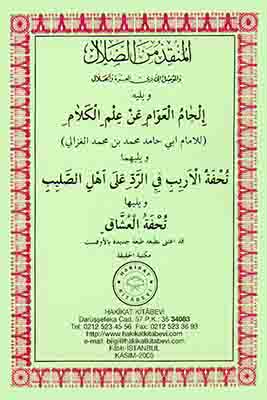 المنقذ من الضلال
والموصل الى ذي العزة والجلال
و يليه
إلجام العوام عن علم الكلام
(للامام ابي حامد محمد بن محمد الغزالي)
و يليهما
تحفة الأريب في الرد على أهل الصليب
و يليها
تحفة العشاق
قد اعتنى بطبعه طبعة جديدة بالأوفست
مكتبة الحقيقة
HAKİKAT KİTABEVİ
HAKİKAT KİTÂBEVİ
Darüşşefeka Cad. 57 P.K.: 35 34083
Tel: 0212 523 45 56 Fax: 0212 523 36 93
http://www.hakikatkitabevi.com
e-mail: bilgi@hakikatkitabevi.com
Fatih-İSTANBUL
KASIM-2005